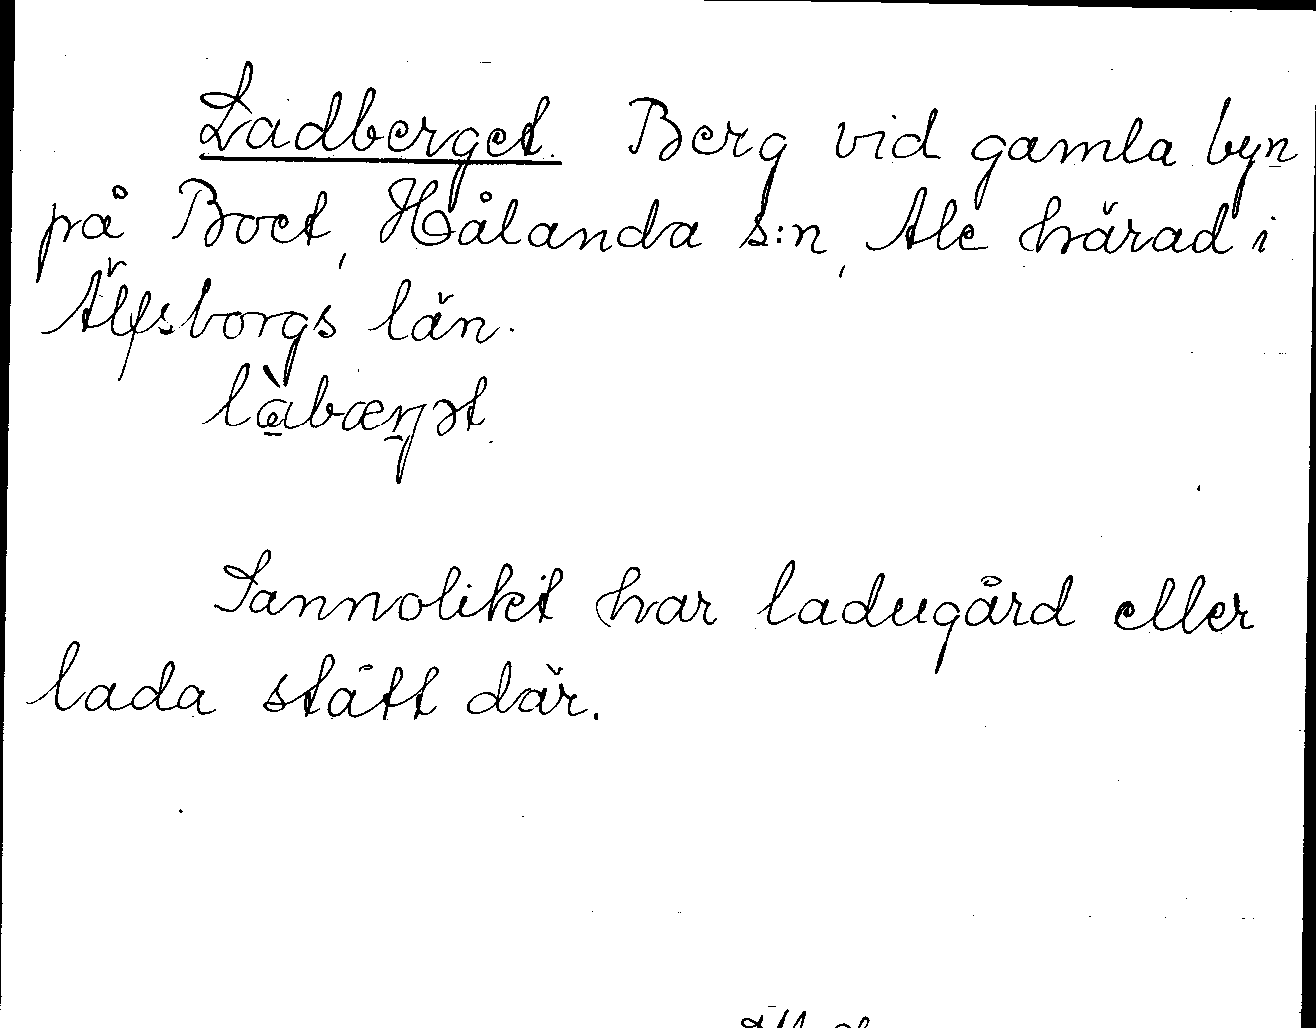 Ladberget. Berg vid gamla byn
på Boet, Hålanda s:n, Ale härad i
Älfsborgs län.
Sannolikt har ladugård eller
lada stått där.